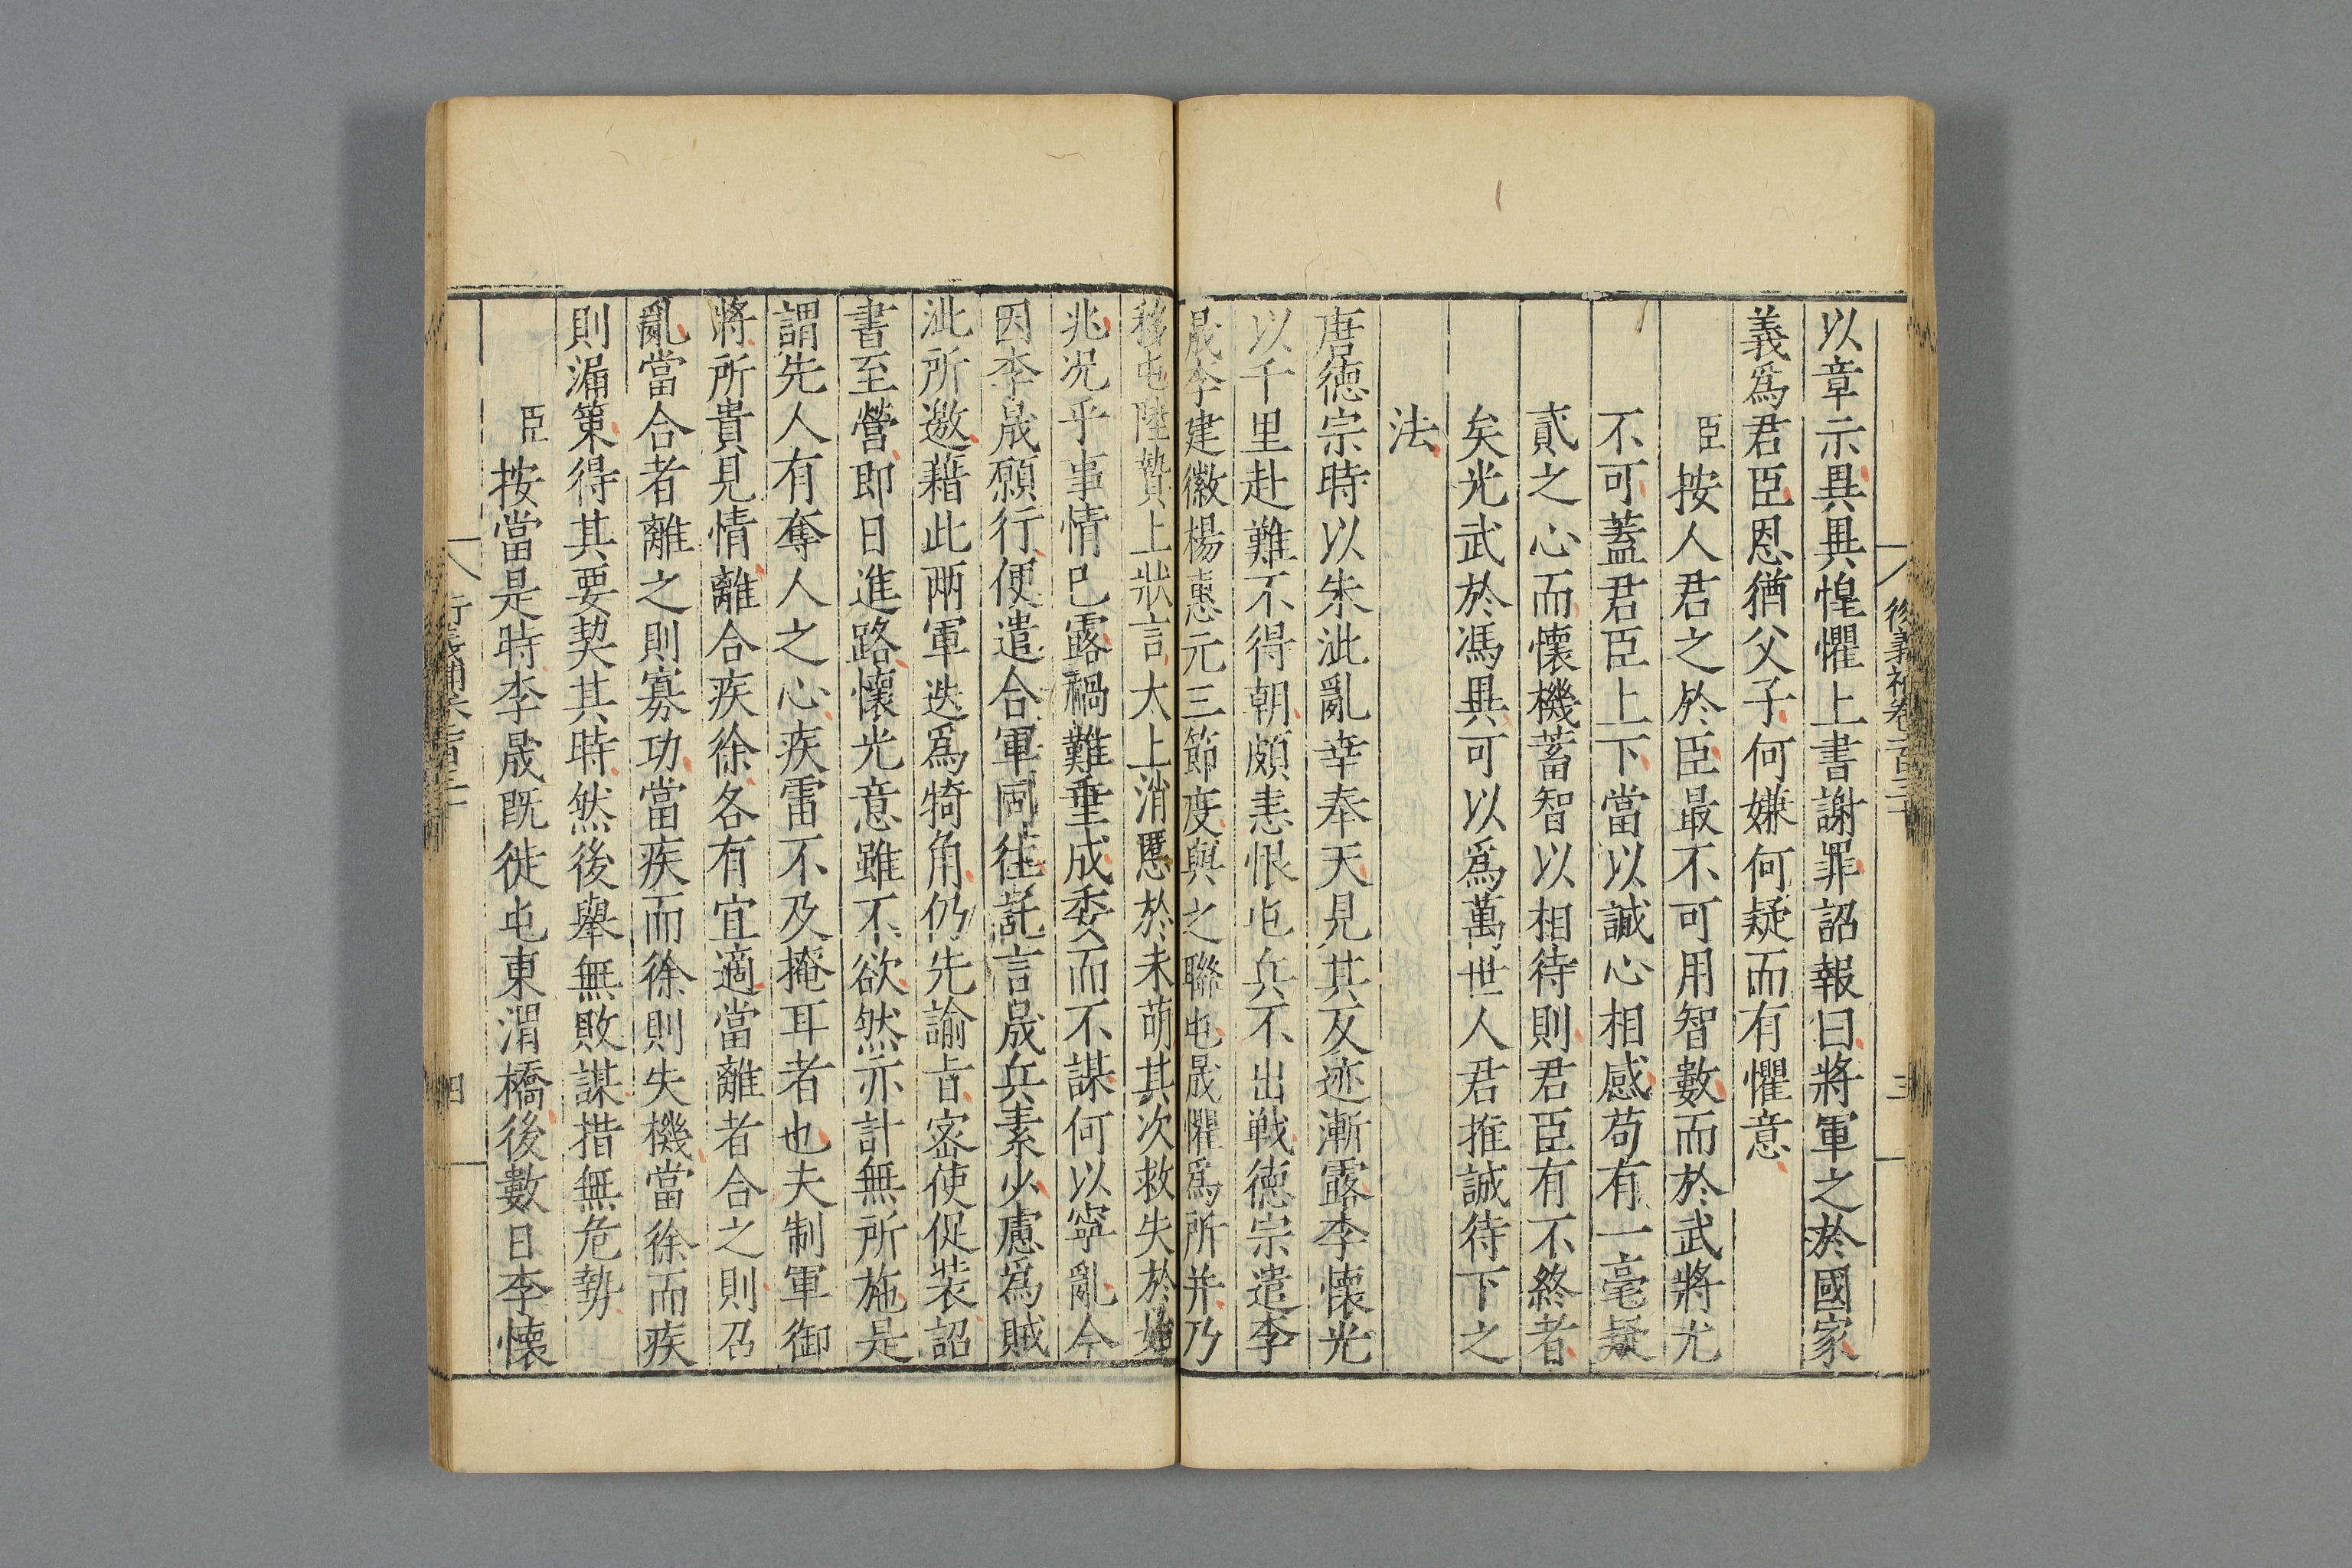 以章示異異惶懼上書謝罪詔報曰將軍之於國家
義爲君臣恩猶父子何嫌何疑而有懼意
臣按人君之於臣最不可用智數而於武將尤
不可蓋君臣上下當以誠心相感苟有一毫疑
貳之心而懷機蓄智以相待則君臣有不終者
矣光武於馮異可以爲萬世人君推誠待下之
法
唐德宗時以朱泚亂幸奉天見其反迹漸露李懷光
以千里赴難不得朝頗恚恨屯兵不出戰德宗遣李
晟李建徽楊惠元三節度與之聯屯晟懼爲所并乃
移屯陸贄上狀言太上消慝於未萌其次救失於始
兆况乎事情已露禍難垂成委而不謀何以寧亂今
因李晟願行便遣合軍同往託言晟兵素少慮爲賊
泚所邀藉此兩軍迭爲犄角仍先諭旨密使促裝詔
書至營即日進路懷光意雖不欲然亦計無所施是
謂先人有奪人之心疾雷不及掩耳者也夫制軍御
將所貴見情離合疾徐各有宜適當離者合之則召
亂當合者離之則寡功當疾而徐則失機當徐而疾
則漏策得其要契其時然後舉無敗謀措無危勢
臣按當是時李晟既徙屯東渭橋後數日李懷